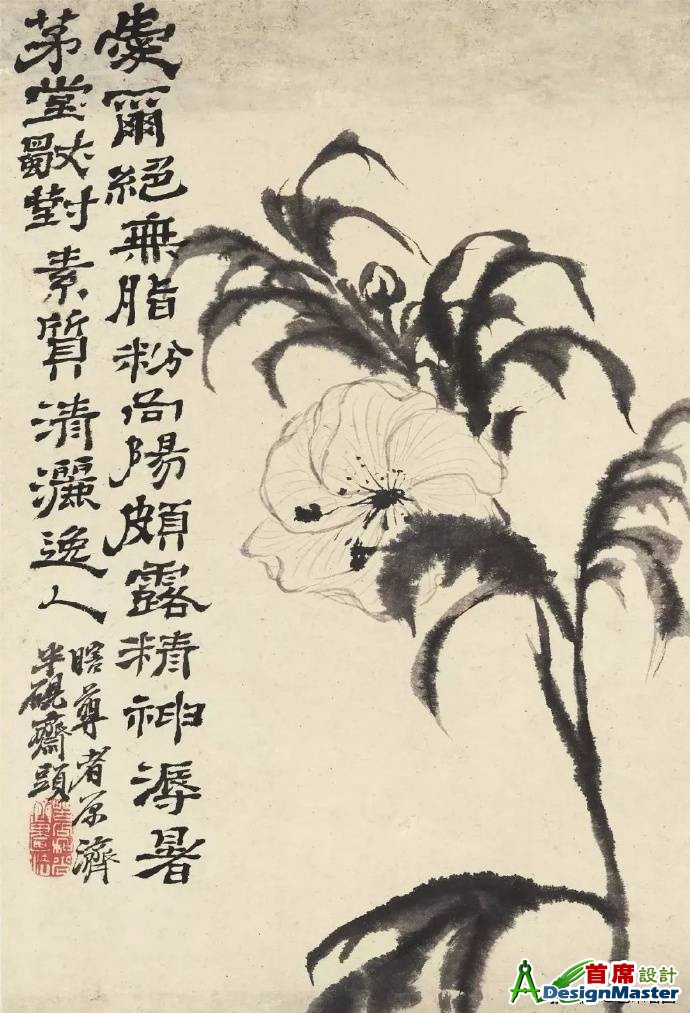 愛爾絕無脂粉向陽頗露精神溽暑
茅堂獨對素質清灑逸人
瞎尊者原濟
半硯齋頭
首席設計
DesignMaster